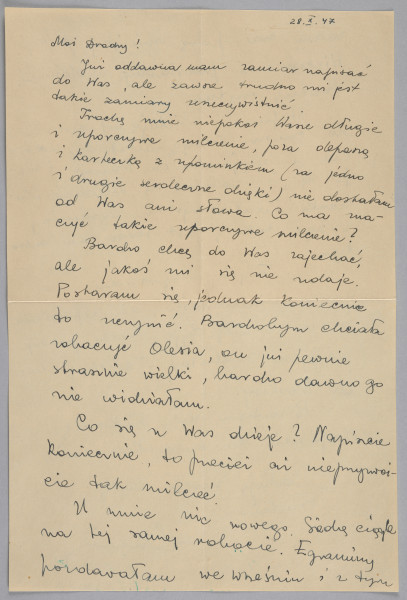 28.X.47
Moi Drodzy!
Już oddawna mam zamiar napisać
do Was, ale zawsze trudno mi jest
takie zamiary urzeczywistnić.
Trochę mnie niepokoi Wasze długie
i uporczywe milczenie, poza depeszą
i karteczką z upominkiem (za jedno
i drugie serdeczne dzięki) nie dostałam
od Was ani słowa. Co ma zna-
czyć takie uporczywe milczenie?
Bardzo chcę do Was zajechać,
ale jakoś mi się nie udaje.
Postaram się, jednak koniecznie
to uczynić. Bardzobym chciała
zobaczyć Olesia, on już pewnie
strasznie wielki, bardzo dawno go
nie widziałam.
Co się u Was dzieje? Napiszcie
koniecznie, to przecież aż nieprzyzwoi-
cie tak milczeć.
U mnie nic nowego. Siedzę ciągle
na tej samej robocie. Egzaminy
pozdawałam we wrześniu i z tym